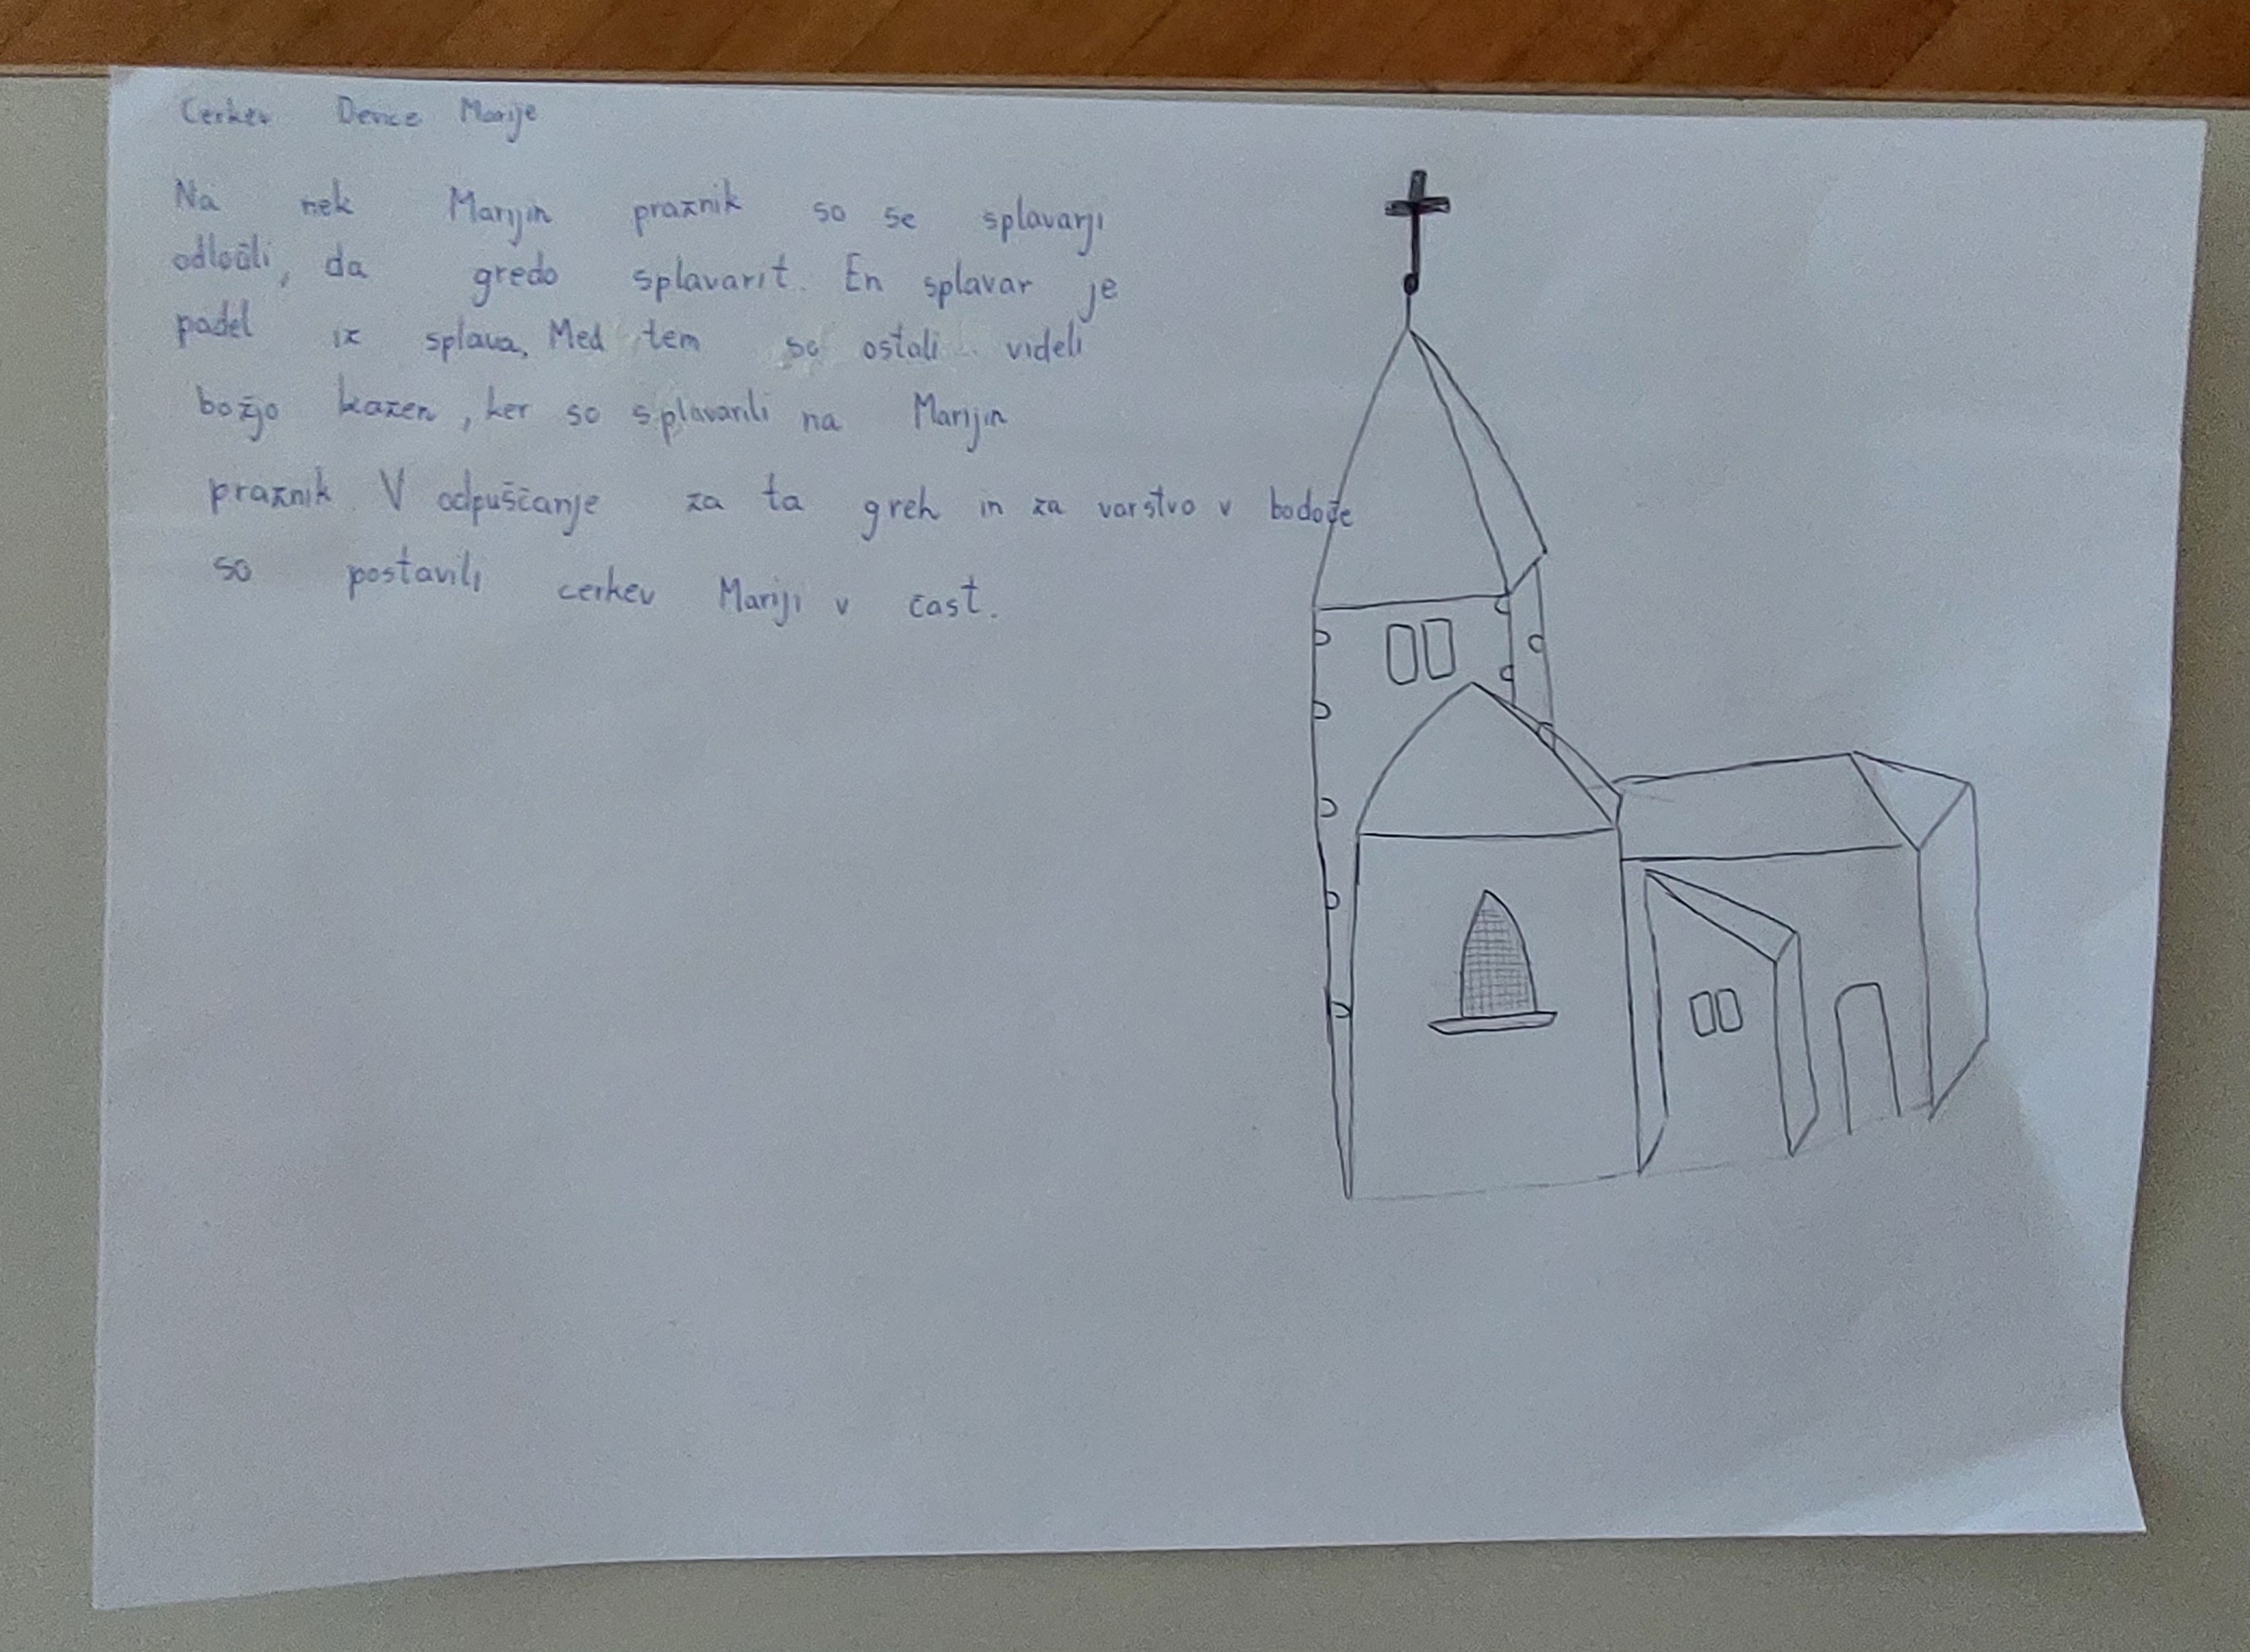 Cerkev Device Marije
Na nek Marijin praznik so se splavarji
odločili, da gredo splavarit. En splavar je
padel iz splava, Med tem so ostali videli
božjo kazen, ker so splavarili na Marijin
praznik. V odpuščanje za ta greh in za varstvo v bodoče
so postavili cerkev Mariji v čast.